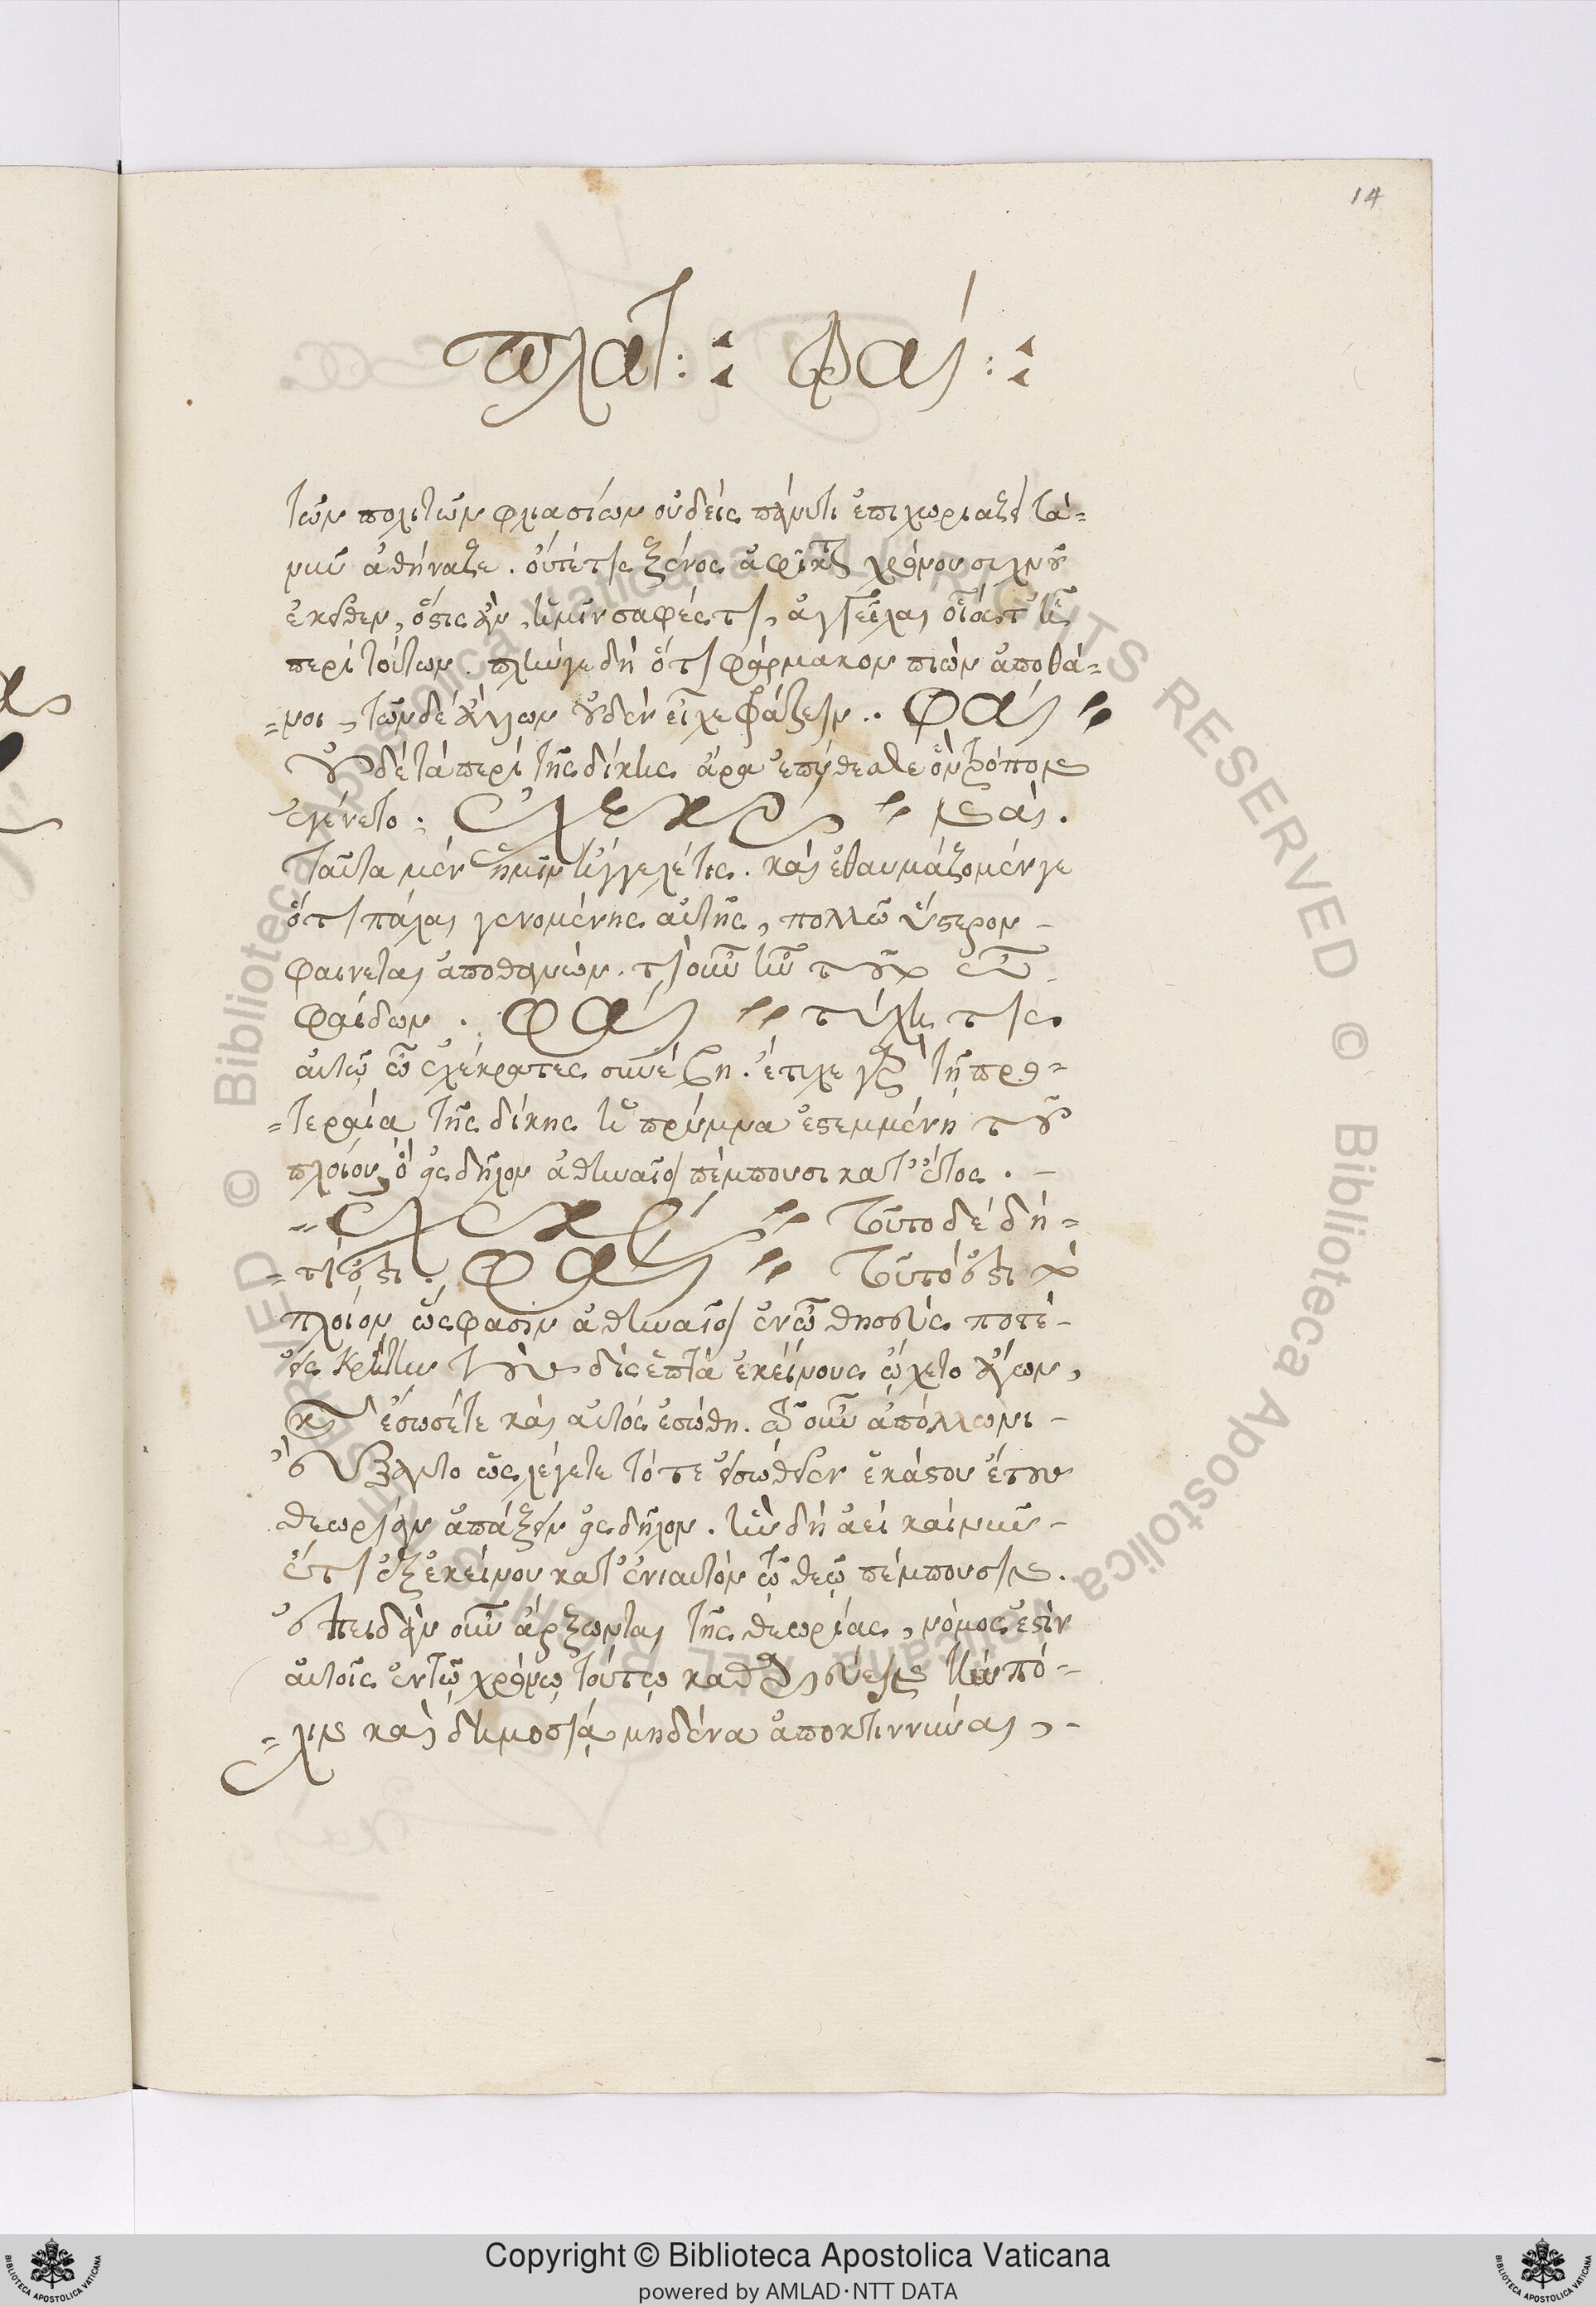 14
πλατ: : φαί: :
τῶν πολιτῶν φλιασίων οὐδείς πάνυτι ἐπιχωριαζει τά=
νῦν ἀθήναζε. οὔτέτις ξένος ἀφῖκται χρόνου συχνοῦ
ἐκεῖθεν, ὅστις ἂν, ἡμῖν σαφές τι, ἀγγεῖλαι οἷός τ' ἦν
περί τούτων. πλήν γε δή ὅτι φάρμακον πιών ἀποθά=
=νοι, τῶνδέ ἄλλων οὐδέν εἶχε φράζειν. φαί
οὐδέ τά περί τῆς δίκης ἄρα ἐπύθεσθε ὃν τρόπον
ἐγένετο: ἐχεκρ ναί.
Ταῦτα μέν ἡμῖν ἤγγειλέ τις. καί ἐθαυμάζομέν γε
ὅτι πάλαι γενομένης αὐτῆς, πολλῶ ὕστερον –
φαίνεται ἀποθανών. τί οὖν ἦν τοῦτο ὦ
φαίδων. φαί τύχη τις
αὐτῷ ὦ ἐχέκρατες συνέβη. ἔτυχε γὰρ τῇ προ=
=τεραία τῆς δίκης ἡ πρύμνα ἐστεμμένη τοῦ
πλοίου, ὅ ἐς δῆλον ἀθηναῖοι πέμπουσι κατ' ἔτος. –
= ἐχεκρ Τοῦτο δέ δή=
=τί ἐστι. φαί Τοῦτό ἐστι τὸ
πλοῖον ὥς φασιν ἀθηναῖοι ἐν ὧ θησεύς ποτέ –
εἰς Κρήτην τοὺς δίς ἑπτά ἐκείνους ᾤχετο ἄγων,
καὶ ἔσωσέ τε καί αὐτός ἐσώθη. τῷ οὖν ἀπόλλωνι –
εὔξαντο ὡς λέγεται τότε εἰ σωθεῖεν ἑκάστου ἔτους
θεωρίαν ἀπάξειν ἐς δῆλον. ἣν δή ἀεί καί νῦν –
ἔτι ἐξ ἐκείνου κατ' ἐνιαυτόν τῷ θεῷ πέμπουσιν.
ἐπειδάν οὖν ἄρξωνται τῆς θεωρίας, νόμος ἐστίν
αὐτοῖς ἐν τῷ χρόνῳ τούτῳ καθαρεύειν τήν πό–
=λιν καί δημοσίᾳ μηδένα ἀποκτιννύναι, –
Copyright © Biblioteca Apostolica Vaticana
powered by AMLAD·NTT DATA